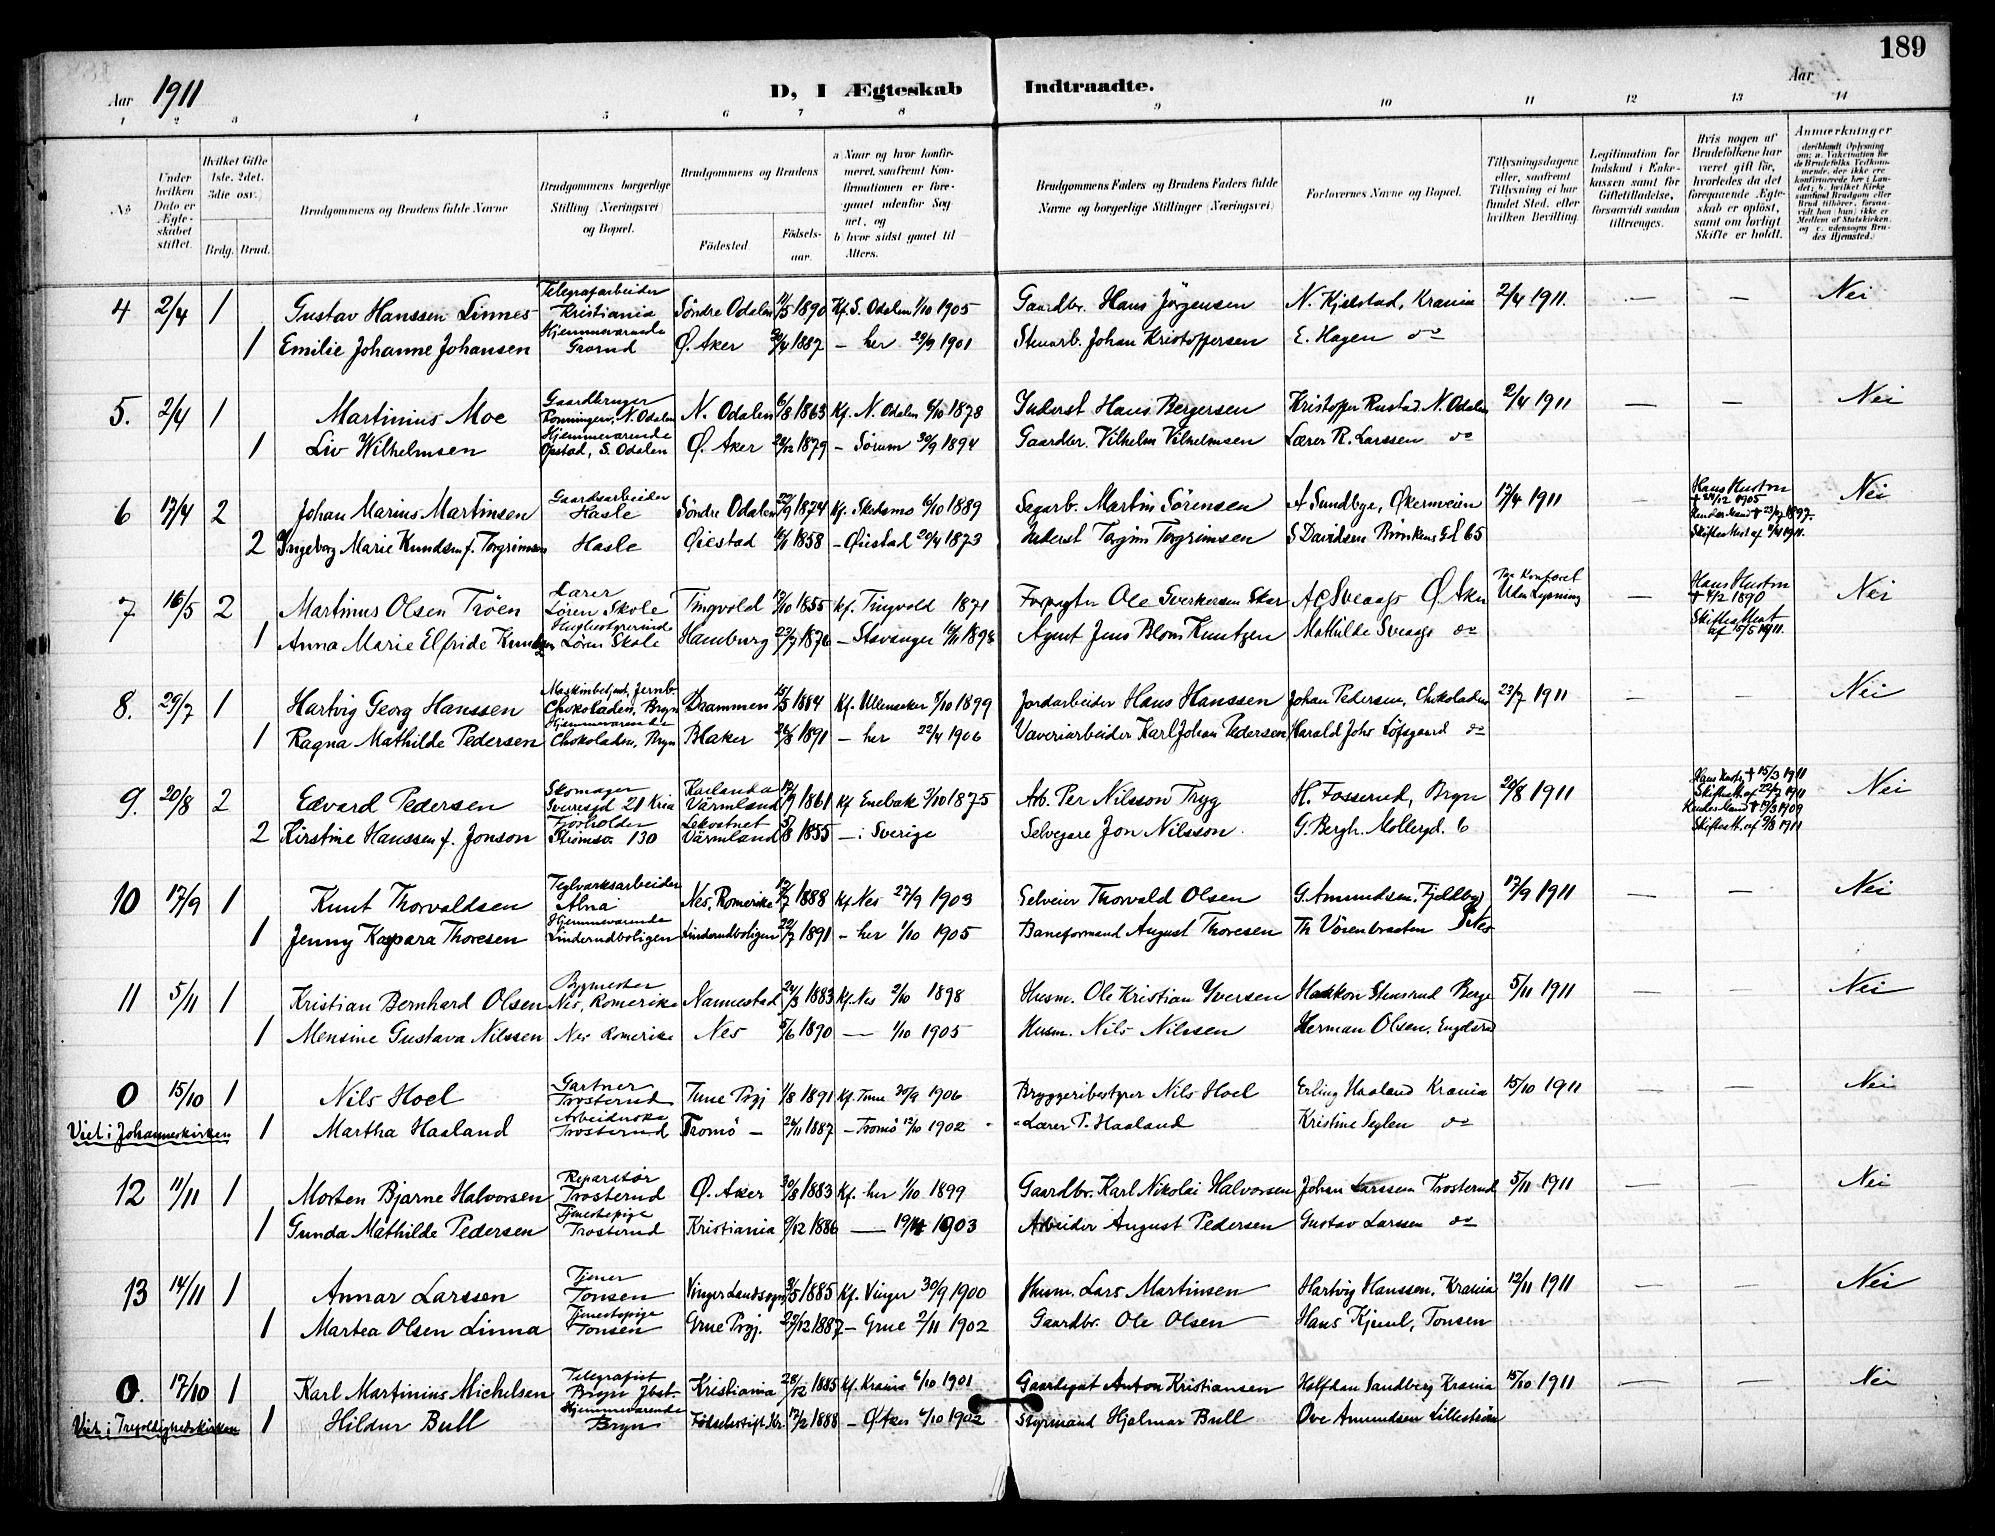 189
Aar 1911 D, I Ægteskab Indtraadte. Aar
1 2 3 4 5 6 7 8 9 10 11 12 13 14
No
Under hvilken Dato er Ægteskabet stiftet.
Hvilket Gifte 1ste. 2det. 3die osv.)
Brdg. Brud.
Brudgommens og Brudens fulde Navne
Brudgommens borgerlige Stilling (Næringsvei) og Bopæl.
Brudgommens og Brudens
Födested. Födselsaar.
a) Naar og hvor konfirmeret, saafremt Konfirmationen er foregaaet udenfor Sognet, og
b) hvor sidst gaaet til Alters.
Brudgommens Faders og Brudens Faders fulde Navne og borgerlige Stillinger (Næringsvei)
Forlovernes Navne og Bopæl.
Tillysningsdagene eller, saafremt Tillysning ei har fundet Sted, efter hvilken Bevilling.
Legitimation for Indskud i Enkekassen samt for Giftetilladelse, forsaavidt saadan tiltrænges.
Hvis nogen af Brudefolkene har været gift för, hvorledes da det foregaaende Ægteskab er oplöst, samt om lovligt Skifte er holdt.
Anmærkninger
4 2/4 1 Gustav Hanssen Linnes Telegrafarbeider Kristiania Søndre Odalen 11/5 1890 Kf. S. Odalen 1/10 1905 Gaardbr. Hans Jörgensen N. Kjelstad, Krania 2/4 1911. — — Nei
1 Emilie Johanne Johansen Hjemmeværende Grorud Ø. Aker 1887 — her 29/9 1901 Stenarb. Johan Kristoffersen E. Hagen do
5. 2/4 1 Martinius Moe Gaardbruger N. Odalen N. Odalen 6/8 1863 Kf. N. Odalen 6/10 1878 Inderst Hans Bergersen Kristoffer Rustad N. Odalen 2/4 1911 — — Nei
1 Liv Wilhelmsen Hjemmeværende Opstad, S. Odalen Ø. Aker 1879 — Sørum 30/9 1894 Gaardbr. Vilhelm Vilhelmsen Lærer R. Larssen do
6 17/4 2 Johan Marius Martinsen Gaardsarbeider Hasle Søndre Odalen 1874 Kf. Skedsmo 6/10 1889 Sagarb. Martin Sörensen A Sundbye, Økernveien 17/4 1911 — Nei
Hans Hustru
2 Ingeborg Marie Knudsen f. Torgrimsen Hasle Øiestad 1858 — Øiestad 20/4 1873 Inderst Torgrim Torgrimsen S Davidsen
7 16/5 2 Martinus Olsen Tröen Lærer Løren Skole Tingvold 1855 Kf. Tingvold 1871 Forpagter Ole Sverkersen Skar Ø. Aker Uden Lysning — Nei
Hans Hustru 1890
1 Anna Marie Elfride Knudsen Løren Skole Hamburg 1876 — Stavanger Agent Jens Blom Knutzen Mathilde Sveaas do
Skifteattest af 15/5 1911.
8. 29/7 1 Hartvig Georg Hanssen Maskinbetjent, Jernb. Chokoladen, Bryn Drammen 15/5 1884 Kf. Ullensaker 8/10 1899 Jordarbeider Hans Hanssen Johan Pedersen, Chokoladen 23/7 1911 — — Nei
1 Ragna Mathilde Pedersen Hjemmeværende Chokoladen, Bryn Blaker 1891 — her 22/4 1906 Væveriarbeider Karl Johan Pedersen Harald Johs Löfsgaard do
9. 20/8 2 Edvard Pedersen Skomager 21 Kria Karlanda Värmland 1861 Kf. Enebak 3/10 1875 Arb. Per Nilsson Tryg H. Fosserud, Bryn 20/8 1911 Nei
2 Kirstine Hanssen f. Jonson Strömsv. 130 Värmland 1855 — i Sverige Selvegare Jon Nilsson. G. Bergh. Mollergd. 6
10 17/9 1 Knut Thorvaldsen Teglværksarbeider Alna Nes, Romerike 1888 Kf. Nes 27/9 1903 Selveier Thorvald Olsen G. Amundsen, Fjeldby 17/9 1911 — — Nei
1 Jenny Kaspara Thoresen Hjemmeværende Linderudboligen Linderudboligen 1891 — her 1/10 1905 Baneformand August Thoresen Th Vörenbraaten Nes
11 5/11 1 Kristian Bernhard Olsen Bygmester Nes, Romerike Nannestad 1883 Kf. Nes 2/10 1898 Husm. Ole Kristian Yversen Haakon Stensrud Berge 5/11 1911 — — Nei
1 Mensine Gustava Nilssen Nes Romerike Nes 5/6 1890 — 1/10 1905 Husm. Nils Nilssen Herman Olsen,
0 15/10 1 Nils Hoel Gartner Trosterud Tune Prgj 1/8 1891 Kf. Tune 30/9 1906 Bryggeribestyrer Nils Hoel Erling Haaland Krania 15/10 1911 — — Nei
Viet i Johanneskirken 1 Martha Haaland Trosterud Tromö — 1887 — Tromö 12/10 1902 Lærer T. Haaland Kristine Seglen do
12 11/11 1 Morten Bjarne Halvorsen Reparatör Trosterud Ø. Aker 30/8 1883 Kf. her 1/10 1899 Gaardbr. Karl Nikolai Halvorsen Johan Larssen Trosterud 5/11 1911 — — Nei
1 Gunda Mathilde Pedersen Tjenestepige Trosterud Kristiania 9/12 1886 — 1903 Arbeider August Pedersen Gustav Larssen do
13 14/11 1 Annar Larssen Tjener Tonsen Vinger Landsogn 3/5 1885 Kf. Vinger 30/9 1900 Husm. Lars Martinsen Hartvig Hanssen, Krania 12/11 1911 — — Nei
1 Martea Olsen Linna Tjenestepige Tonsen Grue Prgj. 1887 — Grue 2/11 1902 Gaardbr. Ole Olsen Hans Kjenl, Tonsen
0. 17/10 1 Karl Martinius Michelsen Telegrafist Bryn Jbst. Kristiania 28/12 1885 Kf. Krania 6/10 1901 Anton Kristiansen Halfdan Sandberg Krania 15/10 1911 — — Nei
Viet i Trefoldighedskirken 1 Hildur Bull Hjemmeværende Bryn Födselsstift. Kr. 17/2 1888 — Ø Aker 6/10 1902 Styrmand Hjalmar Bull Ove Amundsen Lilleström